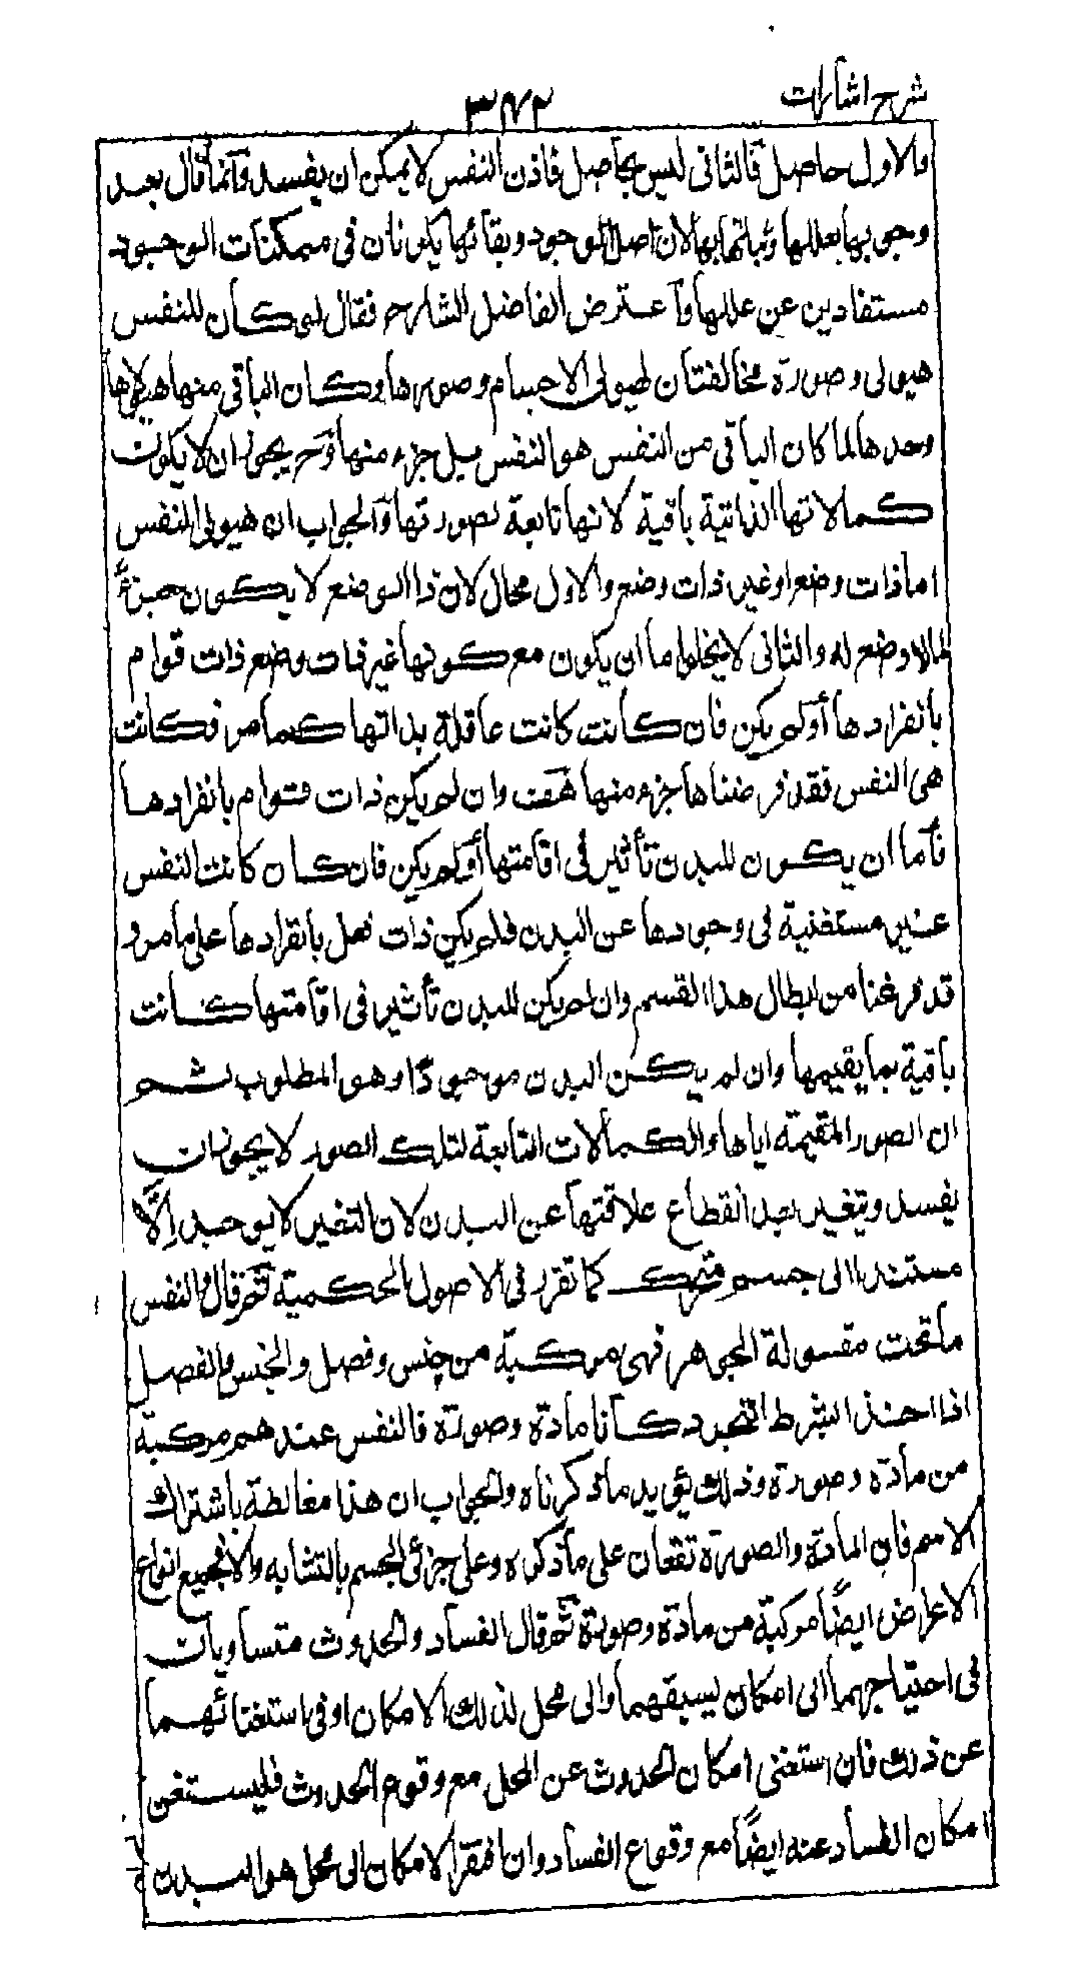 شرح اشارات
٣٧٢
والاول حاصل فالثانى ليس بحاصل فاذن النفس لا يمكن ان يفسد وانما قال بعد
وجوبها بعللها وثباتها بها لان اصل الوجود وبقائها يكونان فى ممكنات الوجود
مستفادين عن عللها واعترض الفاضل الشارح فقال لو كان للنفس
هيولى وصورة مخالفتان لهيولى الاجسام وصورها وكان الباقى منها هيولاها
وحدها لما كان الباقى من النفس هو النفس بل جزء منها وح يجوز ان لا يكون
كمالاتها الذاتية باقية لانها تابعة لصورتها والجواب ان هيولى النفس
اما ذات وضع او غير ذات وضع والاول محال لان ذا الوضع لا يكون جزءً
لما لا وضع له والثانى لا يخلو اما ان يكون مع كونها غير ذات وضع ذات قوام
بانفرادها او لم يكن فان كانت كانت عاقلة بذاتها كما مر فكانت
هى النفس فقد فرضناها جزء منها هف وان لم يكن ذات قوام بانفرادها
فاما ان يكون للبدن تأثير فى اقامتها او لم يكن فان كان كانت النفس
غير مستغنية فى وجودها عن البدن فلم يكن ذات فعل بانفرادها على ما مر و
قد فرغنا من ابطال هذا القسم وان لم يكن للبدن تأثير فى اقامتها كانت
باقية بما يقيمها وان لم يكن البدن موجودًا وهو المطلوب ثم
ان الصور المقيمة اياها والكمالات التابعة لتلك الصور لا يجوز ان
يفسد ويتغير بعد انقطاع علاقتها عن البدن لان التغير لا يوجد اِلَّا
مستندا الى جسم متحرك كما تقرر فى الاصول الحكمية ثم قال والنفس
ما تحت مقولة الجوهر فهى مركبة من جنس وفصل والجنس والفصل
اذا اخذا بشرط التجرد كانا مادة وصورة فالنفس عندهم مركبة
من مادة وصورة وذلك يؤيد ما ذكرناه والجواب ان هذا مغالطة باشتراك
الاسم فان المادة والصورة تقعان على ما ذكره وعلى جزئى الجسم بالتشابه والا فجميع انواع
الاعراض ايضًا مركبة من مادة وصورة ثم قال الفساد والحدوث متساويان
فى احتياجهما الى امكان يسبقهما والى محل لذلك الامكان او فى استغنائهما
عن ذلك فان استغنى امكان الحدوث عن المحل مع وقوع الحدوث فليستغن
امكان الفساد عنه ايضًا مع وقوع الفساد وان افتقر الامكان الى محل هو البدن